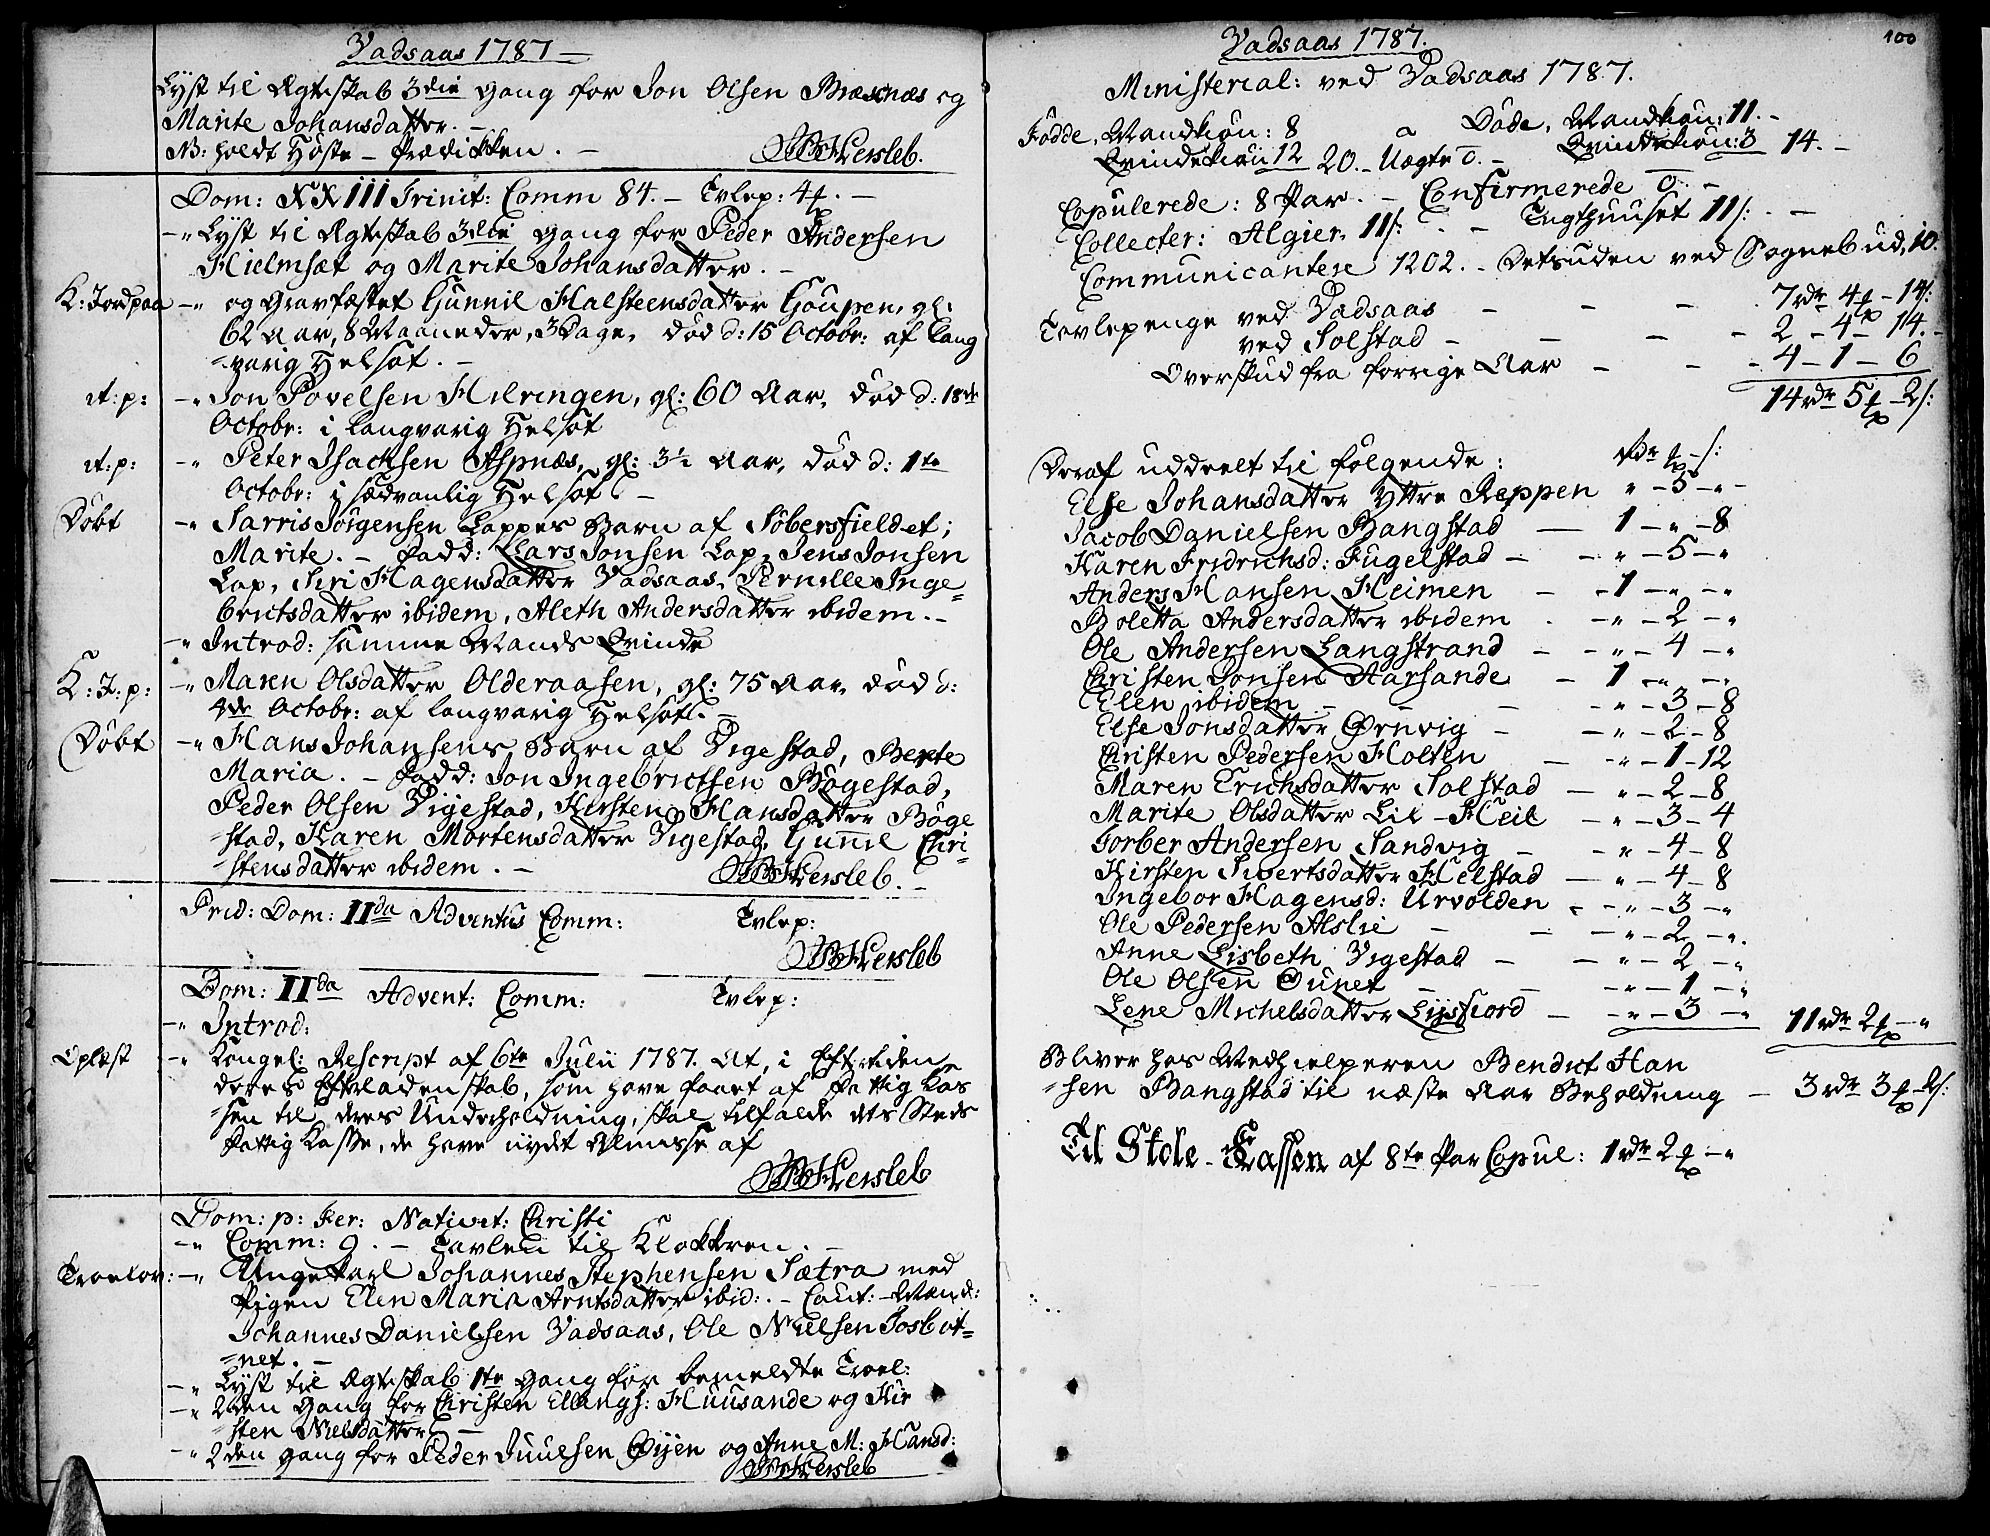 Vadsaas 1787 —
Lyst til Ægteskab 3die gang for Jon Olsen Bræsnæs og
Marite Johansdatter. —
NB: holdt Høste-Prædikken. —
JB Hersleb.
Dom: XXIII Trinit: Comm 84. — Tvlep: 4 —
—" Lyst til Ægteskab 3die gang for Peder Andersen
Hielmsæt og Marite Johansdatter. —
K: Jordpaa —" og Gravfæstet Gunnil Halsteensdatter Goupen, gl:
62 Aar, 8 Maaneder, 3 Dage, død d: 15 Octobr: af lang
=varig Helsot. —
it: p: —" Jon Povelsen Hilringen, gl: 60 Aar, død d: 18de
Octobr: i langvarig Helsot
it: p: —" Peter Isachsen Aspnæs, gl: 3½ Aar, død d: 1te
Octobr: i sædvanlig Helsot —
Døbt —" Sarris Jørgensen Lappes Barn af Søbersfieldet;
Marite. — Fadd: Lars Jonsen Lap, Jens Jonsen
Lap, Siri Hagensdatter Vadsaas, Pernille Inge=
britsdatter ibidem, Aleth Andersdatter ibidem. —
—" Introd: samme Mands Qvinde
K: J: p: —" Maren Olsdatter Olderaasen, gl: 75 Aar, død d:
4de Octobr: af langvarig Helsot. —
Døbt —" Hans Johansens Barn af Vigestad, Berte
Maria. — Fadd: Jon Ingebrictsen Bøgestad,
Peder Olsen Vigestad, Kirsten Hansdatter Bøge
=stad, Karen Mortensdatter Vigestad, Gunnil Chri=
=stensdatter ibidem. —
JB Hersleb. —
Prid: Dom: IIda Adventus Comm: Tvlep:
JB Hersleb
Dom: IIda Advent: Comm: Tvlep:
—" Introd:
Oplæst —" Kongel: Rescript af 6te Julii 1787. At, i
deres Efterladenskab, som have faaet af Fattig Kas
=sen til deres Underholdning, skal tilfalde dets Steds
Fattig Kasse, de have nydt Almisse af
JB Hersleb
Dom: p: Fer: Nativit: Christi
—" Comm: 9. — Tavlen til Klokkeren. —
Troelov: —" Ungekarl Johannes Stephensen Sætra med
Pigen Elen Maria Arntsdatter ibid: — Caut: Mænd:
Johannes Danielsen Vadsaas, Ole Nielsen Fosbot=
=net. —
—" Lyst til Ægteskab 1te gang for bemeldte Troel:
—" 2den gang for Christen Ellings: Huusande og Kir
=sten Nielsdatter —
—" 2den gang for Peder Juulsen Øyen og Anne M: Hansd:
JB Hersleb
100
Vadsaas 1787.
Ministerial: ved Vadsaas 1787.
Fødde, Mandkiøn: 8 Døde, Mandkiøn: 11. —
Qvindekiøn 12 20. — Uægte 0. — Qvindekiøn: 3 14. —
Copulerede: 8 Par. — Confirmerede 0. —
Collecter: Algier, 11 s: — Tugthuuset 11 s: —
Communicantere 1202. — Desuden ved Sognebud, 10.
Tavlepenge ved Vadsaas — — 7 rdr 4 — 14 s:
ved Solstad — — — 2 — 4 — 14. —
Overskud fra forrige Aar — — 4 — 1 — 6
14 rdr 5 — 2 s:
Deraf uddeelt til følgende: Rdr — s:
Else Johansdatter Yttre Reppen " — 5 — " —
Jacob Danielsen Bangstad — 1 — " — 8
Karen Fridrichsd: Fugelstad — — " — 5 — "
Anders Hansen Heimen — — 1 — " — "
Boletta Andersdatter ibidem — " — 2 — "
Ole Andersen Langstrand — — " — 4 — "
Christen Jonsen Aarsande — 1 — " — "
Elen ibidem — — — " — 3 — 8
Else Jonsdatter Ørnvig — — " — 2 — 8
Christen Pedersen Holten — — " — 1 — 12
Maren Erichsdatter Solstad — " — 2 — 8
Marite Olsdatter Lil-Heil — " — 3 — 4
Torber Andersen Sandvig — — " — 4 — 8
Kirsten Sivertsdatter Helstad — " — 4 — 8
Ingebor Hagensd: Urvolden — — " — 3 — "
Ole Pedersen Alslie — — — " — 2 — "
Anne Lisbeth Vigestad — — " — 2 — "
Ole Olsen Øunet — — — " — 1 — "
Lene Michelsdatter Lysfiord — — " — 3 — " 11 rdr 2 — "
Bliver hos Medhielperen Bendict Han
=sen Bangstad til næste Aar Beholdning — 3 rdr 3 — 2 s:
Til Stole-Kassen af 8te Par Copul: 1 rdr 2 — "